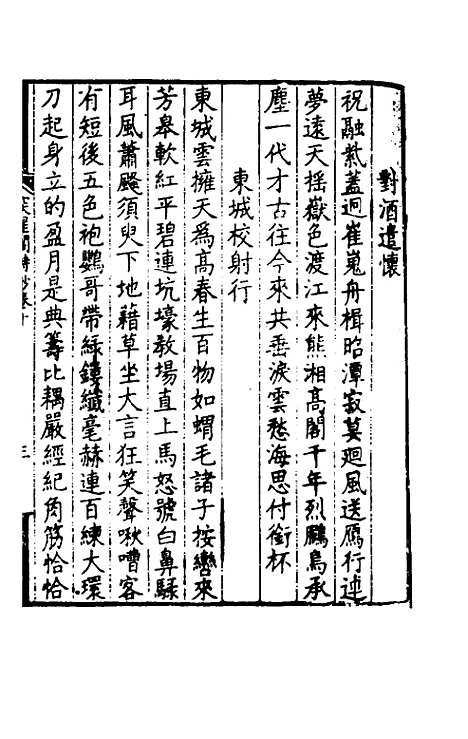 對酒遣懷
祝融紫蓋迥崔嵬舟楫昭潭寂莫迴風送鴈行連
夢遠天摇嶽色渡江來熊湘高閣千年烈鵬鳥承
塵一代才古往今來共垂淚雲愁海思付銜杯
東城校射行
東城雲擁天爲高春生百物如蝟毛諸子按轡來
芳皋軟紅平碧連坑壕教場直上馬怒號白鼻騧
耳風蕭颼須臾下地藉草坐大言狂笑聲啾嘈客
有短後五色袍鸚哥帶緑鏤纖毫赫連百練大環
刀起身立的盈月是典籌比耦嚴經紀角筋恰恰
閒詩鈔卷十
三